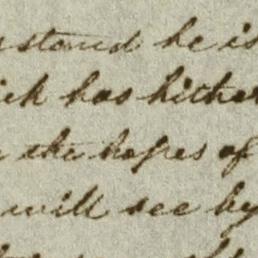 stand he is
ich has hither
the hopes of
will see by